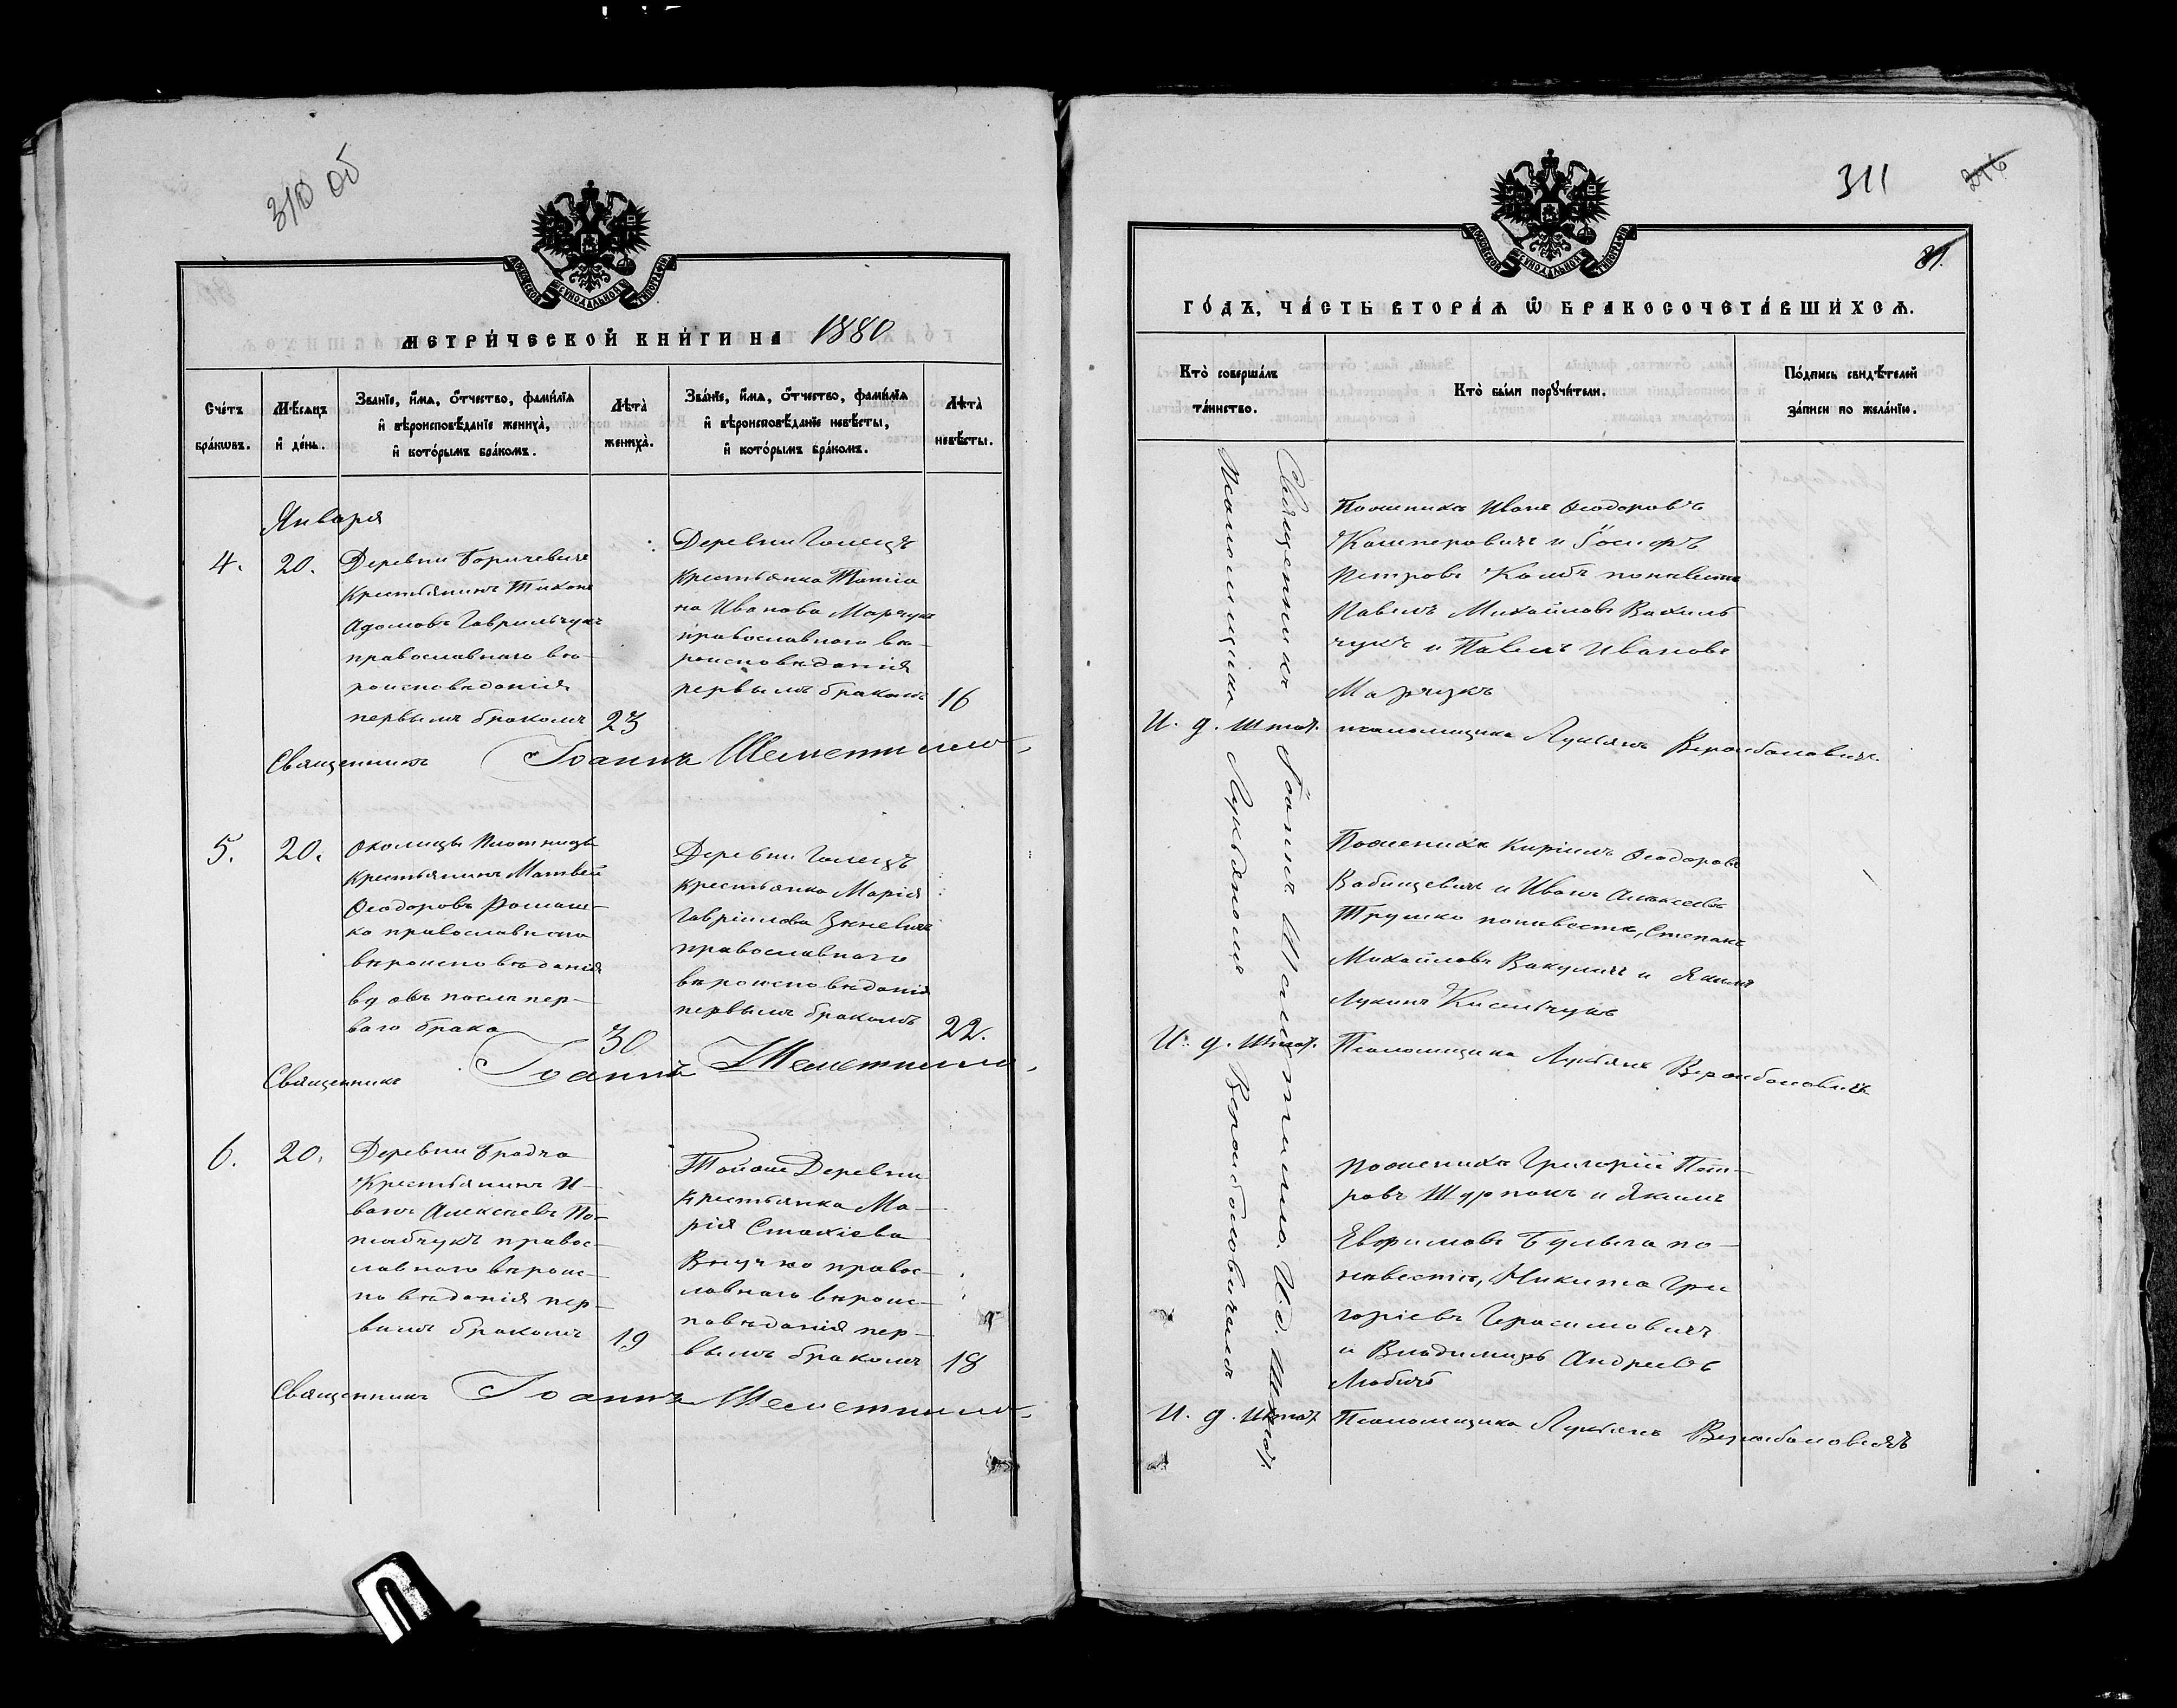 310 об
МЕТРИЧЕСКОЙ КНИГИ НА 1880
Счетъ браковъ.
Мѣсяцъ и день.
Званіе, имя, отчество, фамилія
и вѣроисповѣданіе жениха,
и которымъ бракомъ.
Лѣта жениха.
Званіе, имя, отчество, фамилія
и вѣроисповѣданіе невѣсты,
и которымъ бракомъ.
Лѣта невѣсты.
Января
4.
20.
Деревни Боричевичъ
крестьянинъ Тихонъ
Адамовъ Гаврильчукъ
православнаго вѣ-
роисповѣданія
первымъ бракомъ
23
Деревни Голецъ
крестьянка Татіа
на Иванова Марчукъ
православнаго вѣ-
роисповѣданія
первымъ бракомъ
16
Священникъ Іоаннъ Шеметилло.
5.
20.
Околицы Плотницы
крестьянинъ Матвей
Ѳеодоровъ Ромаш-
ко православнаго
вѣроисповѣданія
вдовъ послѣ пер-
ваго брака
30
Деревни Голецъ
крестьянка Марія
Гавріилова
православнаго
вѣроисповѣданія
первымъ бракомъ
22.
Священникъ Іоаннъ Шеметилло.
6.
20.
Деревни Бродча
крестьянинъ И-
ванъ Алексѣевъ По-
правос-
лавнаго вѣроис-
повѣданія пер-
вымъ бракомъ
19
Тойже Деревни
крестьянка Ма-
рія Стахіева
Внучко правос-
лавнаго вѣроис-
повѣданія пер-
вымъ бракомъ
18
Священникъ Іоаннъ Шеметилло.
311
216
81.
ГОДЪ, ЧАСТЬ ВТОРАЯ Ѡ БРАКОСОЧЕТАВШИХСЯ.
Кто совершалъ таинство.
Кто были поручители.
Подпись свидѣтелей записи по желанію.
Священникъ Іоаннъ Шеметилло. И. д. Штат.
Псаломщика Лукьяномъ Верожболовичемъ
По женихѣ Иванъ Ѳеодоровъ
Кашперовичъ и Іосифъ
Петровъ Колбъ по невѣстѣ
Павелъ Михайловъ Вакуль
чукъ и Павелъ Ивановъ
Марчукъ
И. д. Штат. псаломщика Лукьянъ Верожболовичъ.
По женихѣ Кирилъ Ѳеодоровъ
Бабицевичъ и Иванъ Алексеевъ
Трушко по невѣстѣ, Степанъ
Михайловъ Вакуличъ и Якимъ
Лукинъ Кисельчукъ
И. д. Штат. Псаломщика Лукьянъ Верожболовичъ
По женихѣ Григорій Пет-
ровъ Шурпакъ и Якимъ
Евфимовъ Бульва по
невѣстѣ, Никита Гри
горіевъ Герасимовичъ
и Владимиръ Андреевъ
И. д. Штат. Псаломщика Лукьянъ Верожболовичъ